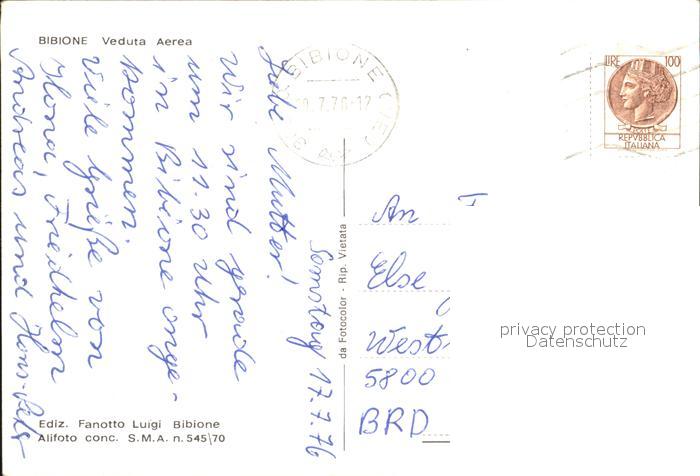 BIBIONE Veduta Aerea
Samstag 17.7.76
Liebe Mutter!
Wir sind gerade
um 11.30 Uhr
in Bibione ange-
kommen.
Viele Grüße von
Ilona, Friedhelm
Andreas und Hans-Peter
Ediz. Fanotto Luigi Bibione
Alifoto conc. S.M.A. n. 545\70
da Fotocolor - Rip. Vietata
BIBIONE (VE)
7.76-12
LIRE 100
POSTE
REPVBBLICA
ITALIANA
An
Else
West
5800
BRD
privacy protection
Datenschutz